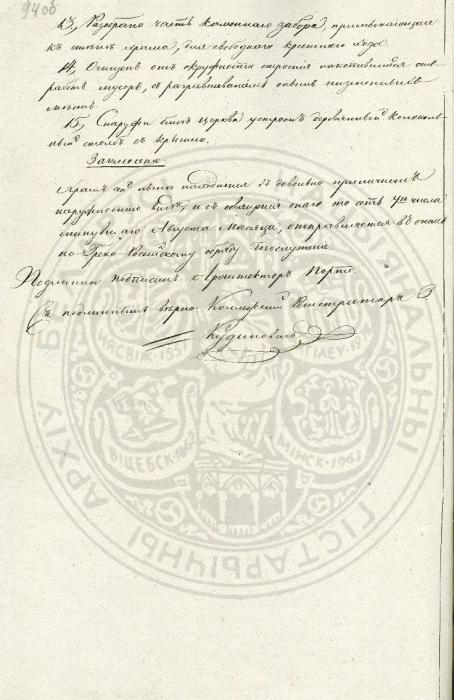 94 об
13, Разобрано часть каменнаго забора, примыкающая
къ стенам храма, для свободнаго крестнаго хода
14, Очищен отъ окружности строения накопившийся отъ
работъ мусоръ, с разравниваниемъ оным низменныхъ
местъ.
15, Снаружи близъ церкви устроенъ деревянный колоколь
ный столбъ съ крышею.
Заключение.
Храмъ находится въ довольно приличномъ
наружномъ виде, и съ освящения онаго то есть 7го числа
минувшаго Августа Месяца, отправляется въ онамъ
по Греко Российскому обряду богослужение
Подлинный подписалъ Архитекторъ Порто.
Съ подлиннымъ верно: Коллежский Регистраторъ
Кудиновичъ
НЯСВІЖ-155
ГІЛЕЎ-19
ВІЦЕБСК-1862
МІНСК-1963
ГІСТАРЫЧНЫ АРХІЎ Б